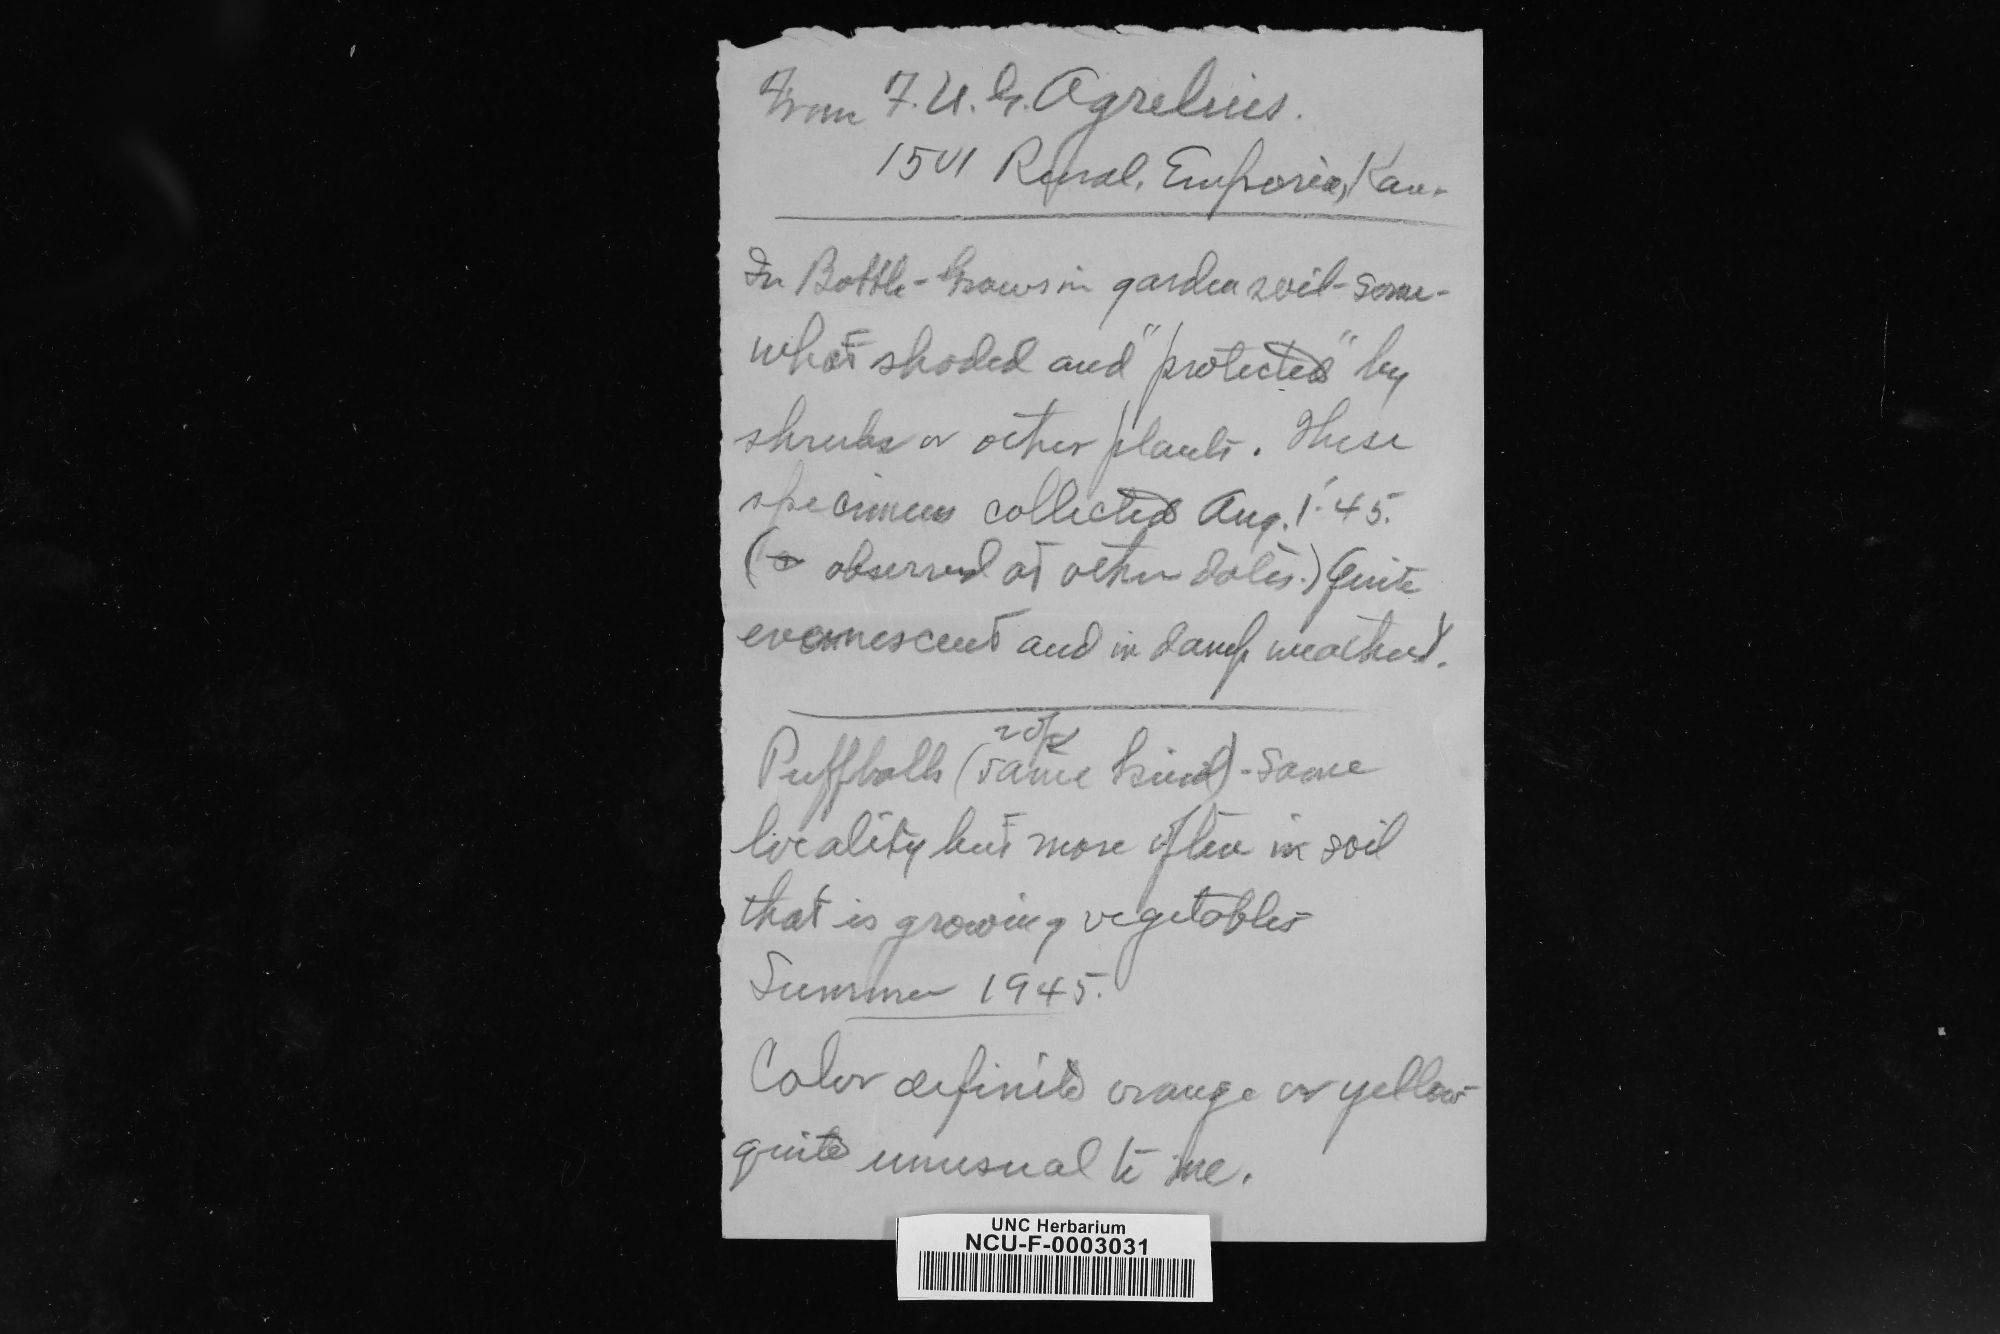 From F. U. G. Agrelius.
1501 Rural, Emporia, Kan.
In Bottle - Grows in garden soil - some-
what shaded and "protected" by
shrubs or other plants. These
specimens collected Aug. 1. '45.
( observed at other dates.) Quite
evanescent and in damp weather.
Puffballs (same kind) - Same
locality but more often in soil
that is growing vegetables
Summer 1945.
Color definite orange or yellow
quite unusual to me.
UNC Herbarium
NCU-F-0003031